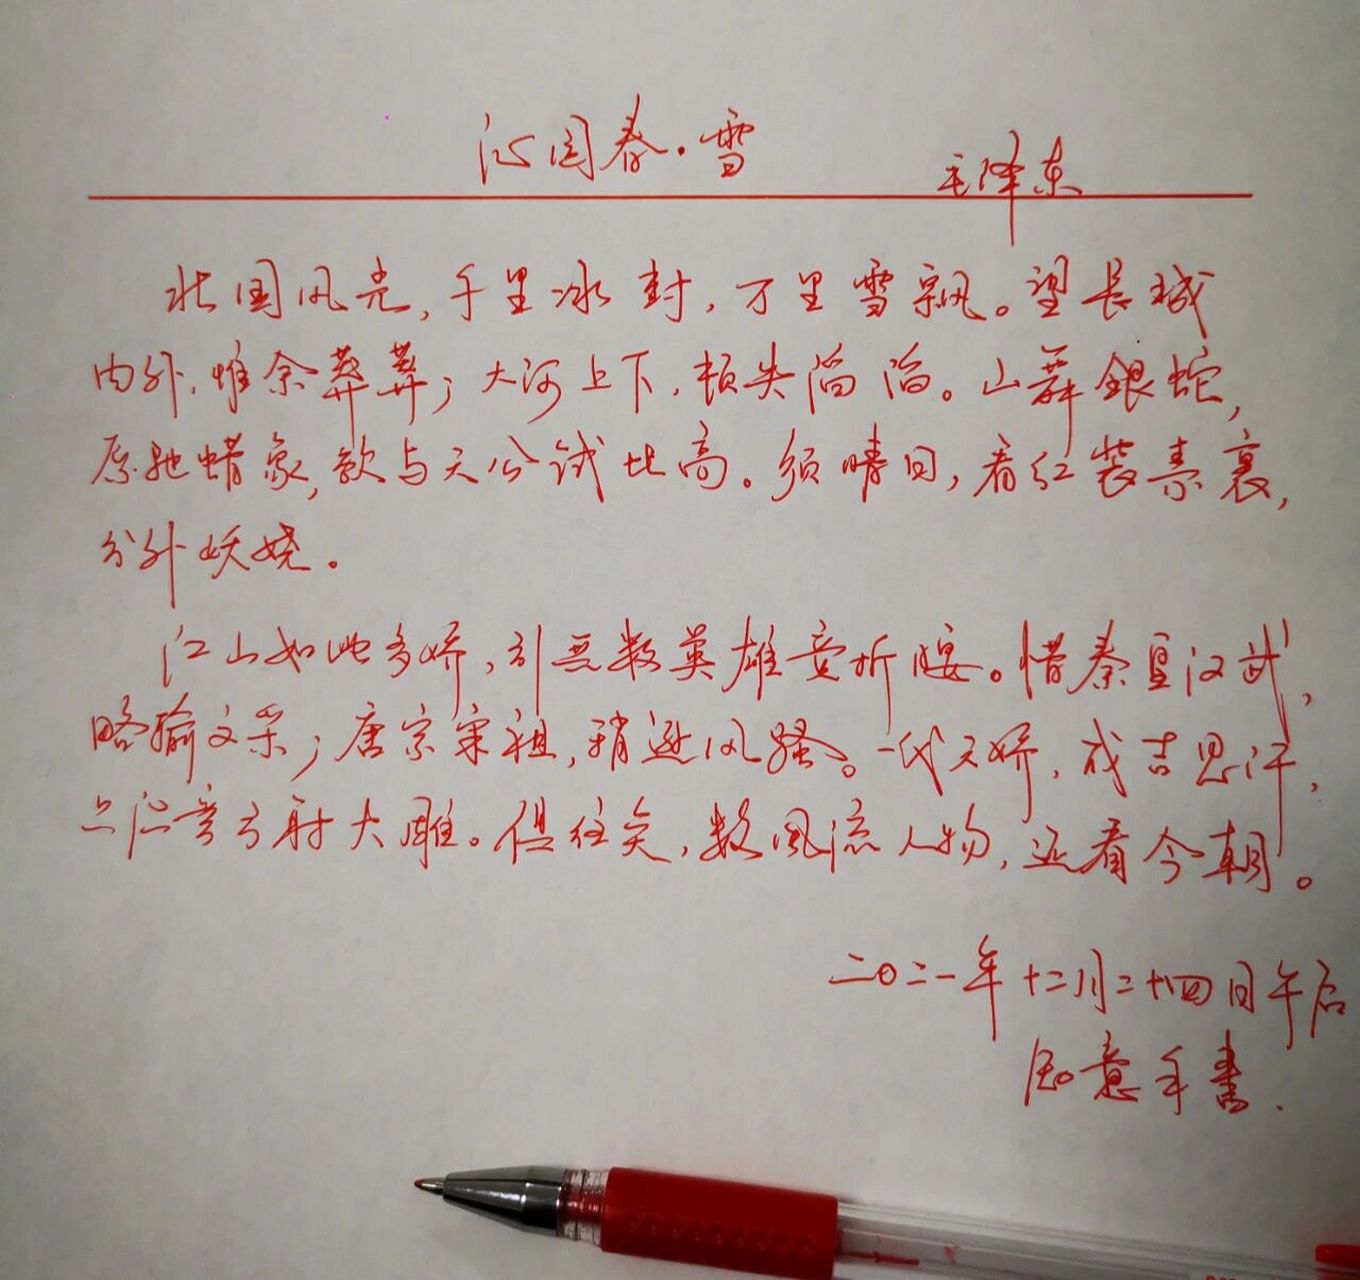 沁园春·雪
毛泽东
北国风光,千里冰封,万里雪飘。望长城
内外,惟余莽莽;大河上下,顿失滔滔。山舞銀蛇,
原驰蜡象,欲与天公试比高。须晴日,看红装素裹,
分外妖娆。
江山如此多娇,引无数英雄竞折腰。惜秦皇汉武,
略输文采;唐宗宋祖,稍逊风骚。一代天骄,成吉思汗,
只识弯弓射大雕。俱往矣,数風流人物,还看今朝。
二〇二一年十二月二十四日午后
知意手書.